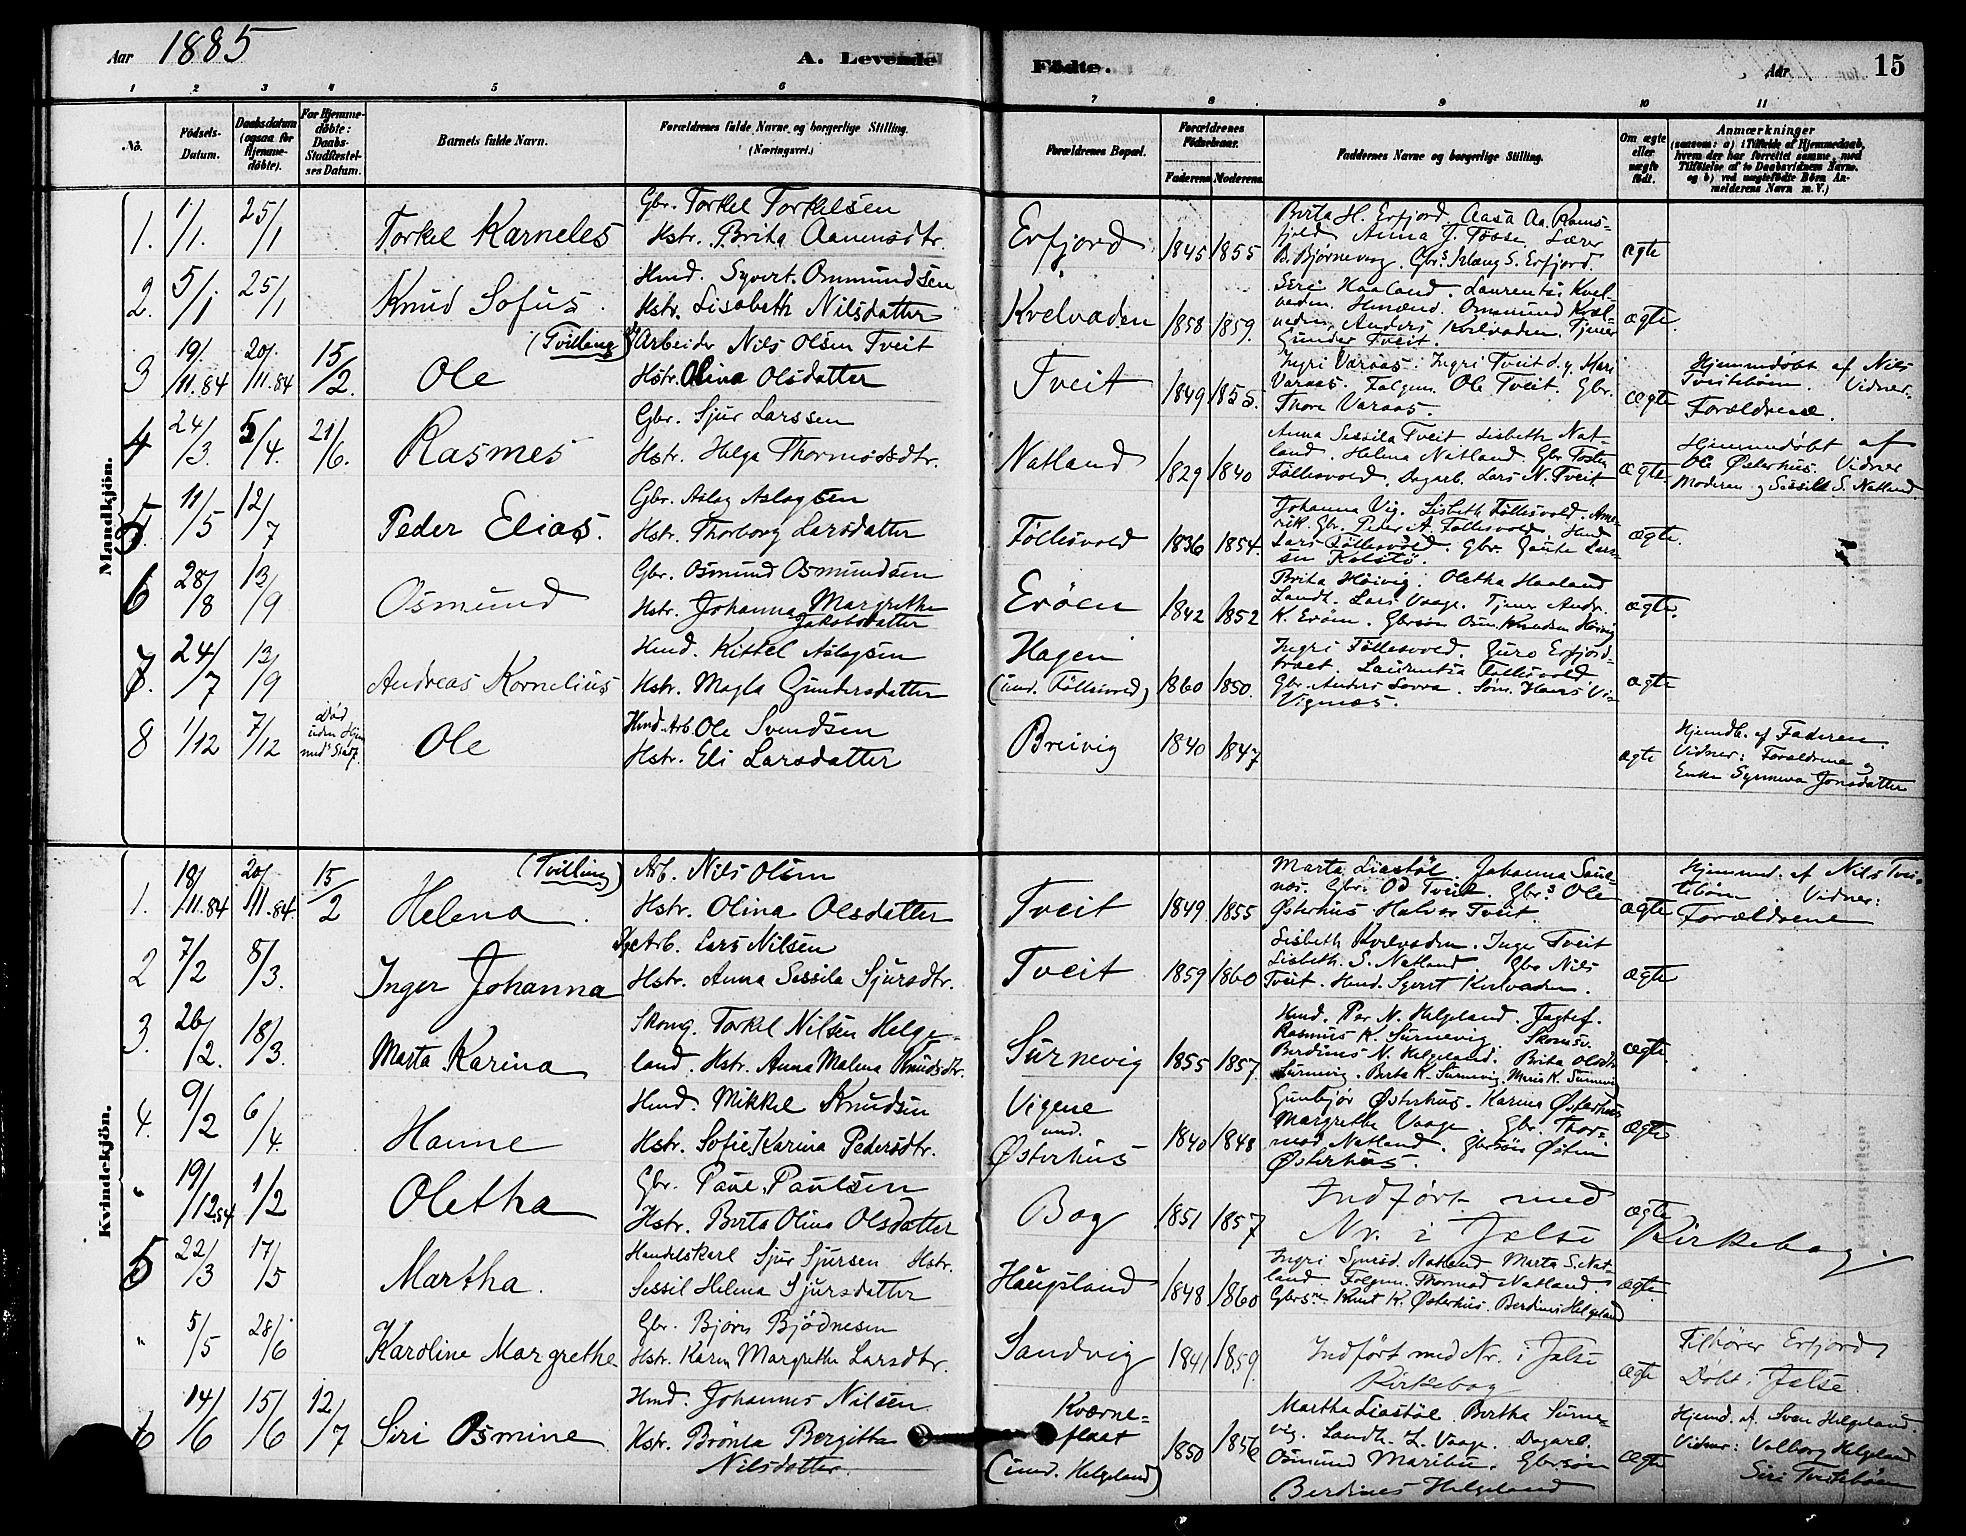 Aar 1885 A. Levende Fødte. Aar 15
1 2 3 4 5 6 7 8 9 10 11
No. Fødsels-Datum. Daabsdatum (ogsaa for Hjemme-døbte). For Hjemme-døbte: Daabs-Stadfæstel-ses Datum. Barnets fulde Navn. Forældrenes fulde Navne og borgerlige Stilling. (Næringsvei.) Forældrenes Bopæl. Forældrenes Fødselsaar. Faderens Moderens Faddernes Navne og borgerlige Stilling. Om ægte eller uægte født. Anmærkninger (saasom: a) i Tilfælde af Hjemmedaab, hvem der har forrettet samme, med Tilføielse af to Daabsvidners Navne. og b) ved uægtefødte Børn An-melderens Navn m.V.)
Mandkjön.
1. 1/1. 25/1 Torkel Karneles
Gbr. Torkel Torkelsen
Hstr. Brita Aanensdtr.
Erfjord 1845 1855
Berta H. Erfjord Aasa Aa. Rams-
fjeld Anna J. Tösse. Lærer
B. Bjørnevaag. Gbrs S. Erfjord.
ægte
2. 5/1 25/1 Knud Sofus.
Hmd. Syvert Ommundsen
Hstr. Lisabeth Nilsdatter
Kvelvaden 1858 1859.
Siri Haaland. Laurentsi Kvel-
vaden. Hmænd. Ommund Kvel-
vaden, Anders Kvelvaden. Tjener
Gunder Tveit.
ægte.
3 19/11.84 20/11.84 15/2. (Tvilling) Ole
Arbeider Nils Olsen Tveit
Hstr. Olina Olsdatter
Tveit 1849 1855.
Ingri Varaas. Ingri Tveit d.y. Mari
Varaas. Folgm. Ole Tveit. Gbr.
Thore Varaas.
ægte
Hjemmdøbt af Nils
Tveitebøen. Vidner.
Forældrene.
4 24/3. 5/4. 21/6. Rasmes
Gbr. Sjur Larssen
Hstr. Helga Thormodsdtr.
Natland 1829 1840
Anna Sessila Tveit. Lisbeth Nat-
land. Helena Natland Gbr Tosten
Föllesvold. Dagarb. Lars N. Tveit.
ægte
Hjemmdøbt af
Ole Østerhus. Vidner
Moderen og Sessilla S. Natland.
5. 11/5 12/7 Peder Elias.
Gbr. Aslag Aslagsen
Hstr. Thorborg Larsdatter
Föllesvold 1836 1854.
Johanna Vig. Lisbeth Föllesvold Ame-
rik. Gbr. Peder A. Föllesvold. Hmd
Lars Föllesvold. Gbr. Gaute Lars-
sen Kolstö.
ægte.
6 28/8 13/9 Osmund
Gbr. Osmund Osmundsen
Hstr. Johanna Margrethe
Jakobsdatter
Erøen 1842 1852
Brita Höivig. Oletha Haaland
Landh. Lars Vaage. Tjener Andr.
K. Erøen. Gbrsøn Osm. Knudsen Höivig
ægte.
7. 24/7 13/9 Andreas Kornelius
Hmd. Kittel Aslagsen
Hstr. Magla Gundersdatter
Hagen
(und. Föllesvold) 1860 1850.
Ingri Föllesvold. Guro Erfjord-
tvæt. Laurentsa Föllesvold.
Gbr. Anders Lovra. Søm. Hans Vi-
Vignæs.
ægte
8 1/12 7/12 Død uden Hjem-med. Stadf. Ole
Hmd. Arb Ole Svendsen
Hstr. Eli Larsdatter
Breivig 1840 1847
ægte
Hjemdb. af Faderen.
Vidner: Forældrene og
Enke Synneva Jonsdatter
Kvindekjön.
1. 18/11.84 20/11.84. 15/2 (Tvilling) Helena.
Arb. Nils Olsen
Hstr. Olina Olsdatter
Tveit 1849 1855
Marta Liastöl. Johanna Sand-
næs. Gbr. Od Tveit. Gbrs Ole
Østerhus Halvor Tveit.
ægte
Hjemmed. af Nils Tvei-
tebøen. Vidner:
Forældrene
2 7/2 8/3. Inger Johanna
Arb. Lars Nilsen
Hstr. Anna Sessila Sjursdtr.
Tveit 1859 1860
Lisbeth Kvelvaden. Inge Tveit
Lisbeth. S. Natland. Gbr Nils
Tveit. Hmd. Syvert Kvelvaden.
ægte
3. 26/2. 18/3. Marta Karina
Skomg. Torkel Nilsen Helge-
land. Hstr. Anna Malena Knudsdtr.
Surnevig 1855 1857.
Hmd. Per N. Helgeland. Jagtef.
Rasmus K. Surnevig. Skomv.
Berdines N. Helgeland. Brita Olsdtr.
Surnevig. Berta K. Surnevig, Maris K. Surnevig
ægte
4. 9/2 6/4. Hanne
Hmd. Mikkel Knudsen
Hstr. Sofie Karina Pedersdtr.
Vigene
und.
Østerhus 1840 1848
Gunbjør Østerhus. Karina Østerhus
Margrethe Vaage. Gbr. Thor-
mod Natland. Gbrsøn Østen
Østerhus.
ægte
" 19/12.84 1/2 Oletha
Gbr. Paul Paulsen
Hstr. Berta Olina Olsdatter
Bog 1851 1857
Indført med
Nr. i Jelse Kirkebog.
ægte
5 22/3 17/5 Martha.
Handelskarl Sjur Sjursen Hstr.
Sessil Helena Sjursdatter
Haugsland 1848 1860
Ingri Sjursd. Natland Marta S. Nat-
land. Folgm. Thormod Natland
Gbrs. Knut K. Østerhus. Berdines Helgeland
ægte
" 5/5 28/6 Karoline Margrethe
Gbr. Bjørn Bjødnesen
Hstr. Karen Margrethe Larsdtr.
Sandvig 1841 1859.
Indført med Nr. i Jelse
Kirkebog
ægte
Tilhører Erfjord
Døbt i Jelse.
6 14/6 15/6 12/7 Siri Osmine
Hmd. Johannes Nilsen
Hstr. Brönla Bergitta
Nilsdatter.
Kværne-
flaat
(und. Helgeland) 1850 1856
Martha Liastöl. Bertha Surne-
vig. Landh. L. Vaage. Dagarb.
Osmund Marihu. Gbrsøn
Berdines Helgeland
ægte
Hjemd. af. Sven Helgeland.
Vidner: Valborg Helgeland
Siri Tveitebøen